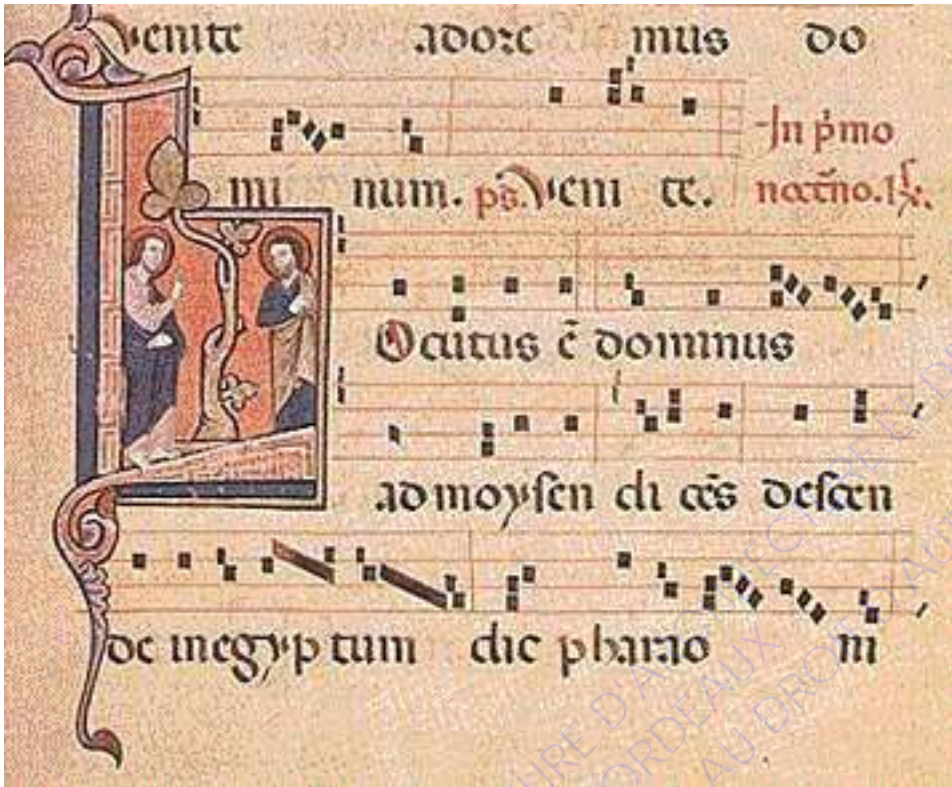 venite adore mus do
mi num. ps. Veni te. In pmo
noctno. lx.
Ocutus ē dominus
ad moysen di cēs descen
de in egyp tum dic pharao ni